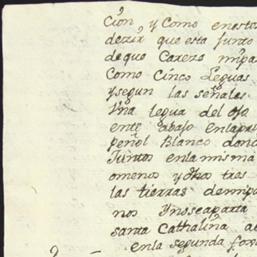 Cion y Como en esto
dezir que esta junto
de que Carezo mi pa
Como Cinco leguas
y segun las señales
Vna legua del ojo
ente abajo en la par
peñol Blanco dond
Juntos en la misma
omenos y otro tres
las tierras de mi pa
nos Yno se aparta
santa Cathalina a
en la segunda for